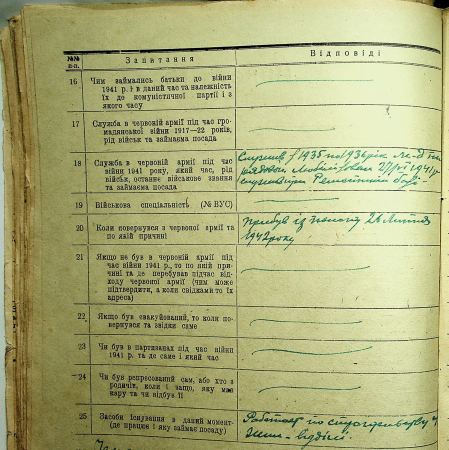 №№ п.п.
Запитання
Відповіді
16 Чим займались батьки до війни
1941 р. і в даний час та належність
їх до комуністичної партії і з
якого часу
17 Служба в червоній армії під час гро-
мадянської війни 1917—22 років,
рід військ та займаєма посада
18 Служба в червоній армії під час
війни 1941 року, який час, рід
військ, останнє військове звання
та займаєма посада
Служив 1935 по 1936 рік
рядовой 1941
19 Військова спеціальність (№ ВУС)
20 Коли повернувся з червоної армії та
по якій причині
Прибув из 26
1942 року
21 Якщо не був в червоній армії під
час війни 1941 р., то по якій при-
чині та де перебував підчас від-
ходу червоної армії (чим може
підтвердити, а коли свідками то їх
адреса)
22 Якщо був евакуйований, то коли по-
вернувся та звідки саме
23 Чи був в партизанах під час війни
1941 р. та де саме і який час
24 Чи був репресований сам, або хто з
родичів, коли і защо, яку мав
кару та чи відбув її
25 Засоби існування в даний момент
(де працює і яку займає посаду)
Работает по